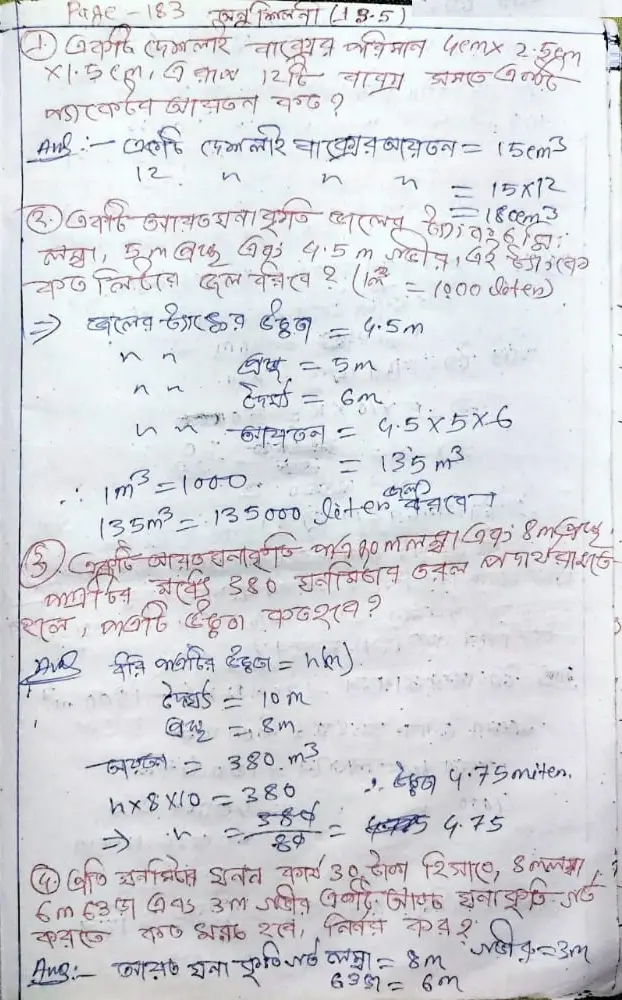 Page - 183 অনুশিলনী (13.5)
① একটি দেশলাই বাক্সের পরিমান 4cm x 2.5cm
x1.5cm, এ রকম 12টি বাক্স সমতে একটি
প্যাকেটের আয়তন কত?
Ans :- একটি দেশলাই বাক্সের আয়তন = 15cm³
12 " " " = 15x12
= 180cm³
②. একটি আয়তঘনাকৃতি জলের
লম্বা, 5m প্রস্থ এবং 4.5 m গভীর, এই
কত লিটার জল ধরিবে? (1m³ = 1000 liten)
=> জলের ট্যাঙ্কের উচ্চতা = 4.5m
" " প্রস্থ = 5m
" " দৈর্ঘ্য = 6m
" " আয়তন = 4.5x5x6
= 135m³
∴ 1m³ = 1000.
135m³ = 135000 liten জল ধরবে।
③ একটি আয়তঘনাকৃতি পাত্র 10m লম্বা এবং 8m প্রস্থ
পাত্রটির মধ্যে 380 ঘনমিটার তরল পদার্থ রাখতে
হলে, পাত্রটি উচ্চতা কত হবে?
Ans ধরি পাত্রটির উচ্চতা = h(m)
দৈর্ঘ্য = 10m
প্রস্থ = 8m
আয়তন = 380 m³
h x 8 x 10 = 380 ∴ উচ্চতা 4.75 miten.
=> h = 380/80 = 4.75
④. প্রতি ঘনমিটার খনন কার্য 30 টাকা হিসাবে, 8m লম্বা,
6m ওড়া এবং 3m গভীর একটি আয়ত ঘনাকৃতি গর্ত
করতে কত খরচ হবে, নির্নয় কর?
Ans :- আয়ত ঘনাকৃতি গর্ত লম্বা = 8m গভীর = 3m
ওড়া = 6m